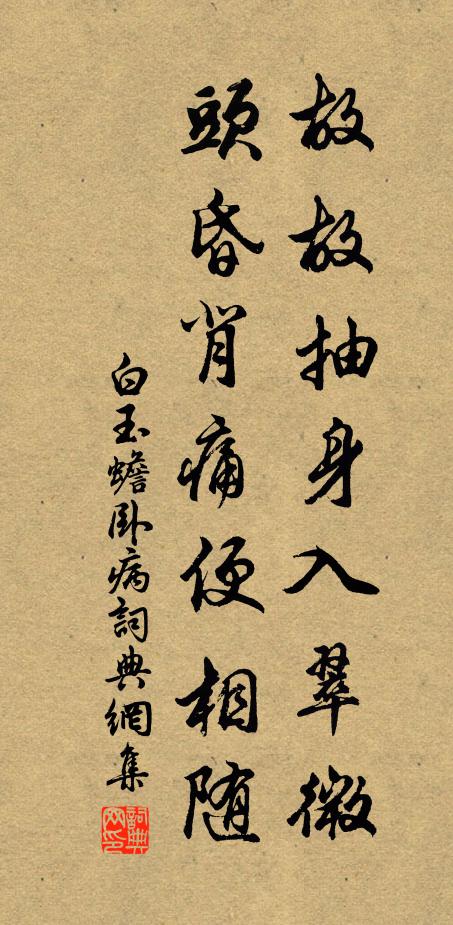 故故抽身入翠微
頭昏背痛便相随
白玉蟾卧病詞典網集
詞典网印